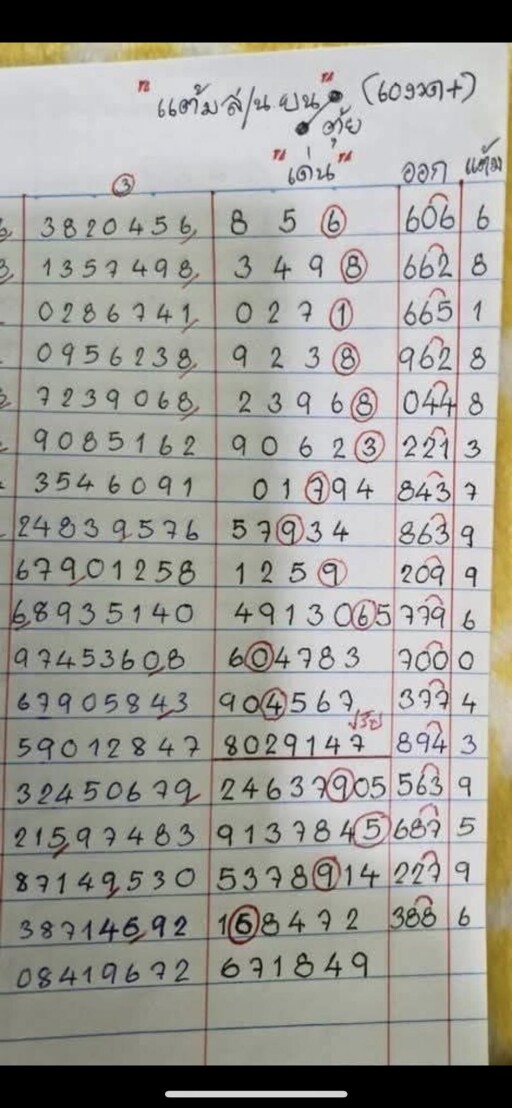 "แต้มล่/น.บน" (60งวด+)
ตุ้ย
③ "เด่น" ออก แต้ม
3820456 8 5 6 606 6
1357498 3 4 9 8 662 8
0286741 0 2 7 1 665 1
0956238 9 2 3 8 962 8
7239068 2 3 9 6 8 044 8
9085162 9 0 6 2 3 221 3
3546091 0 1 7 9 4 843 7
24839576 5 7 9 3 4 863 9
67901258 1 2 5 9 209 9
68935140 4913065 779 6
97453608 604783 700 0
67905843 904567 377 4
ปรับ
59012847 8029147 894 3
32450679 24637905 563 9
21597483 9137845 687 5
87149530 5378914 227 9
38714692 168472 388 6
08419672 671849